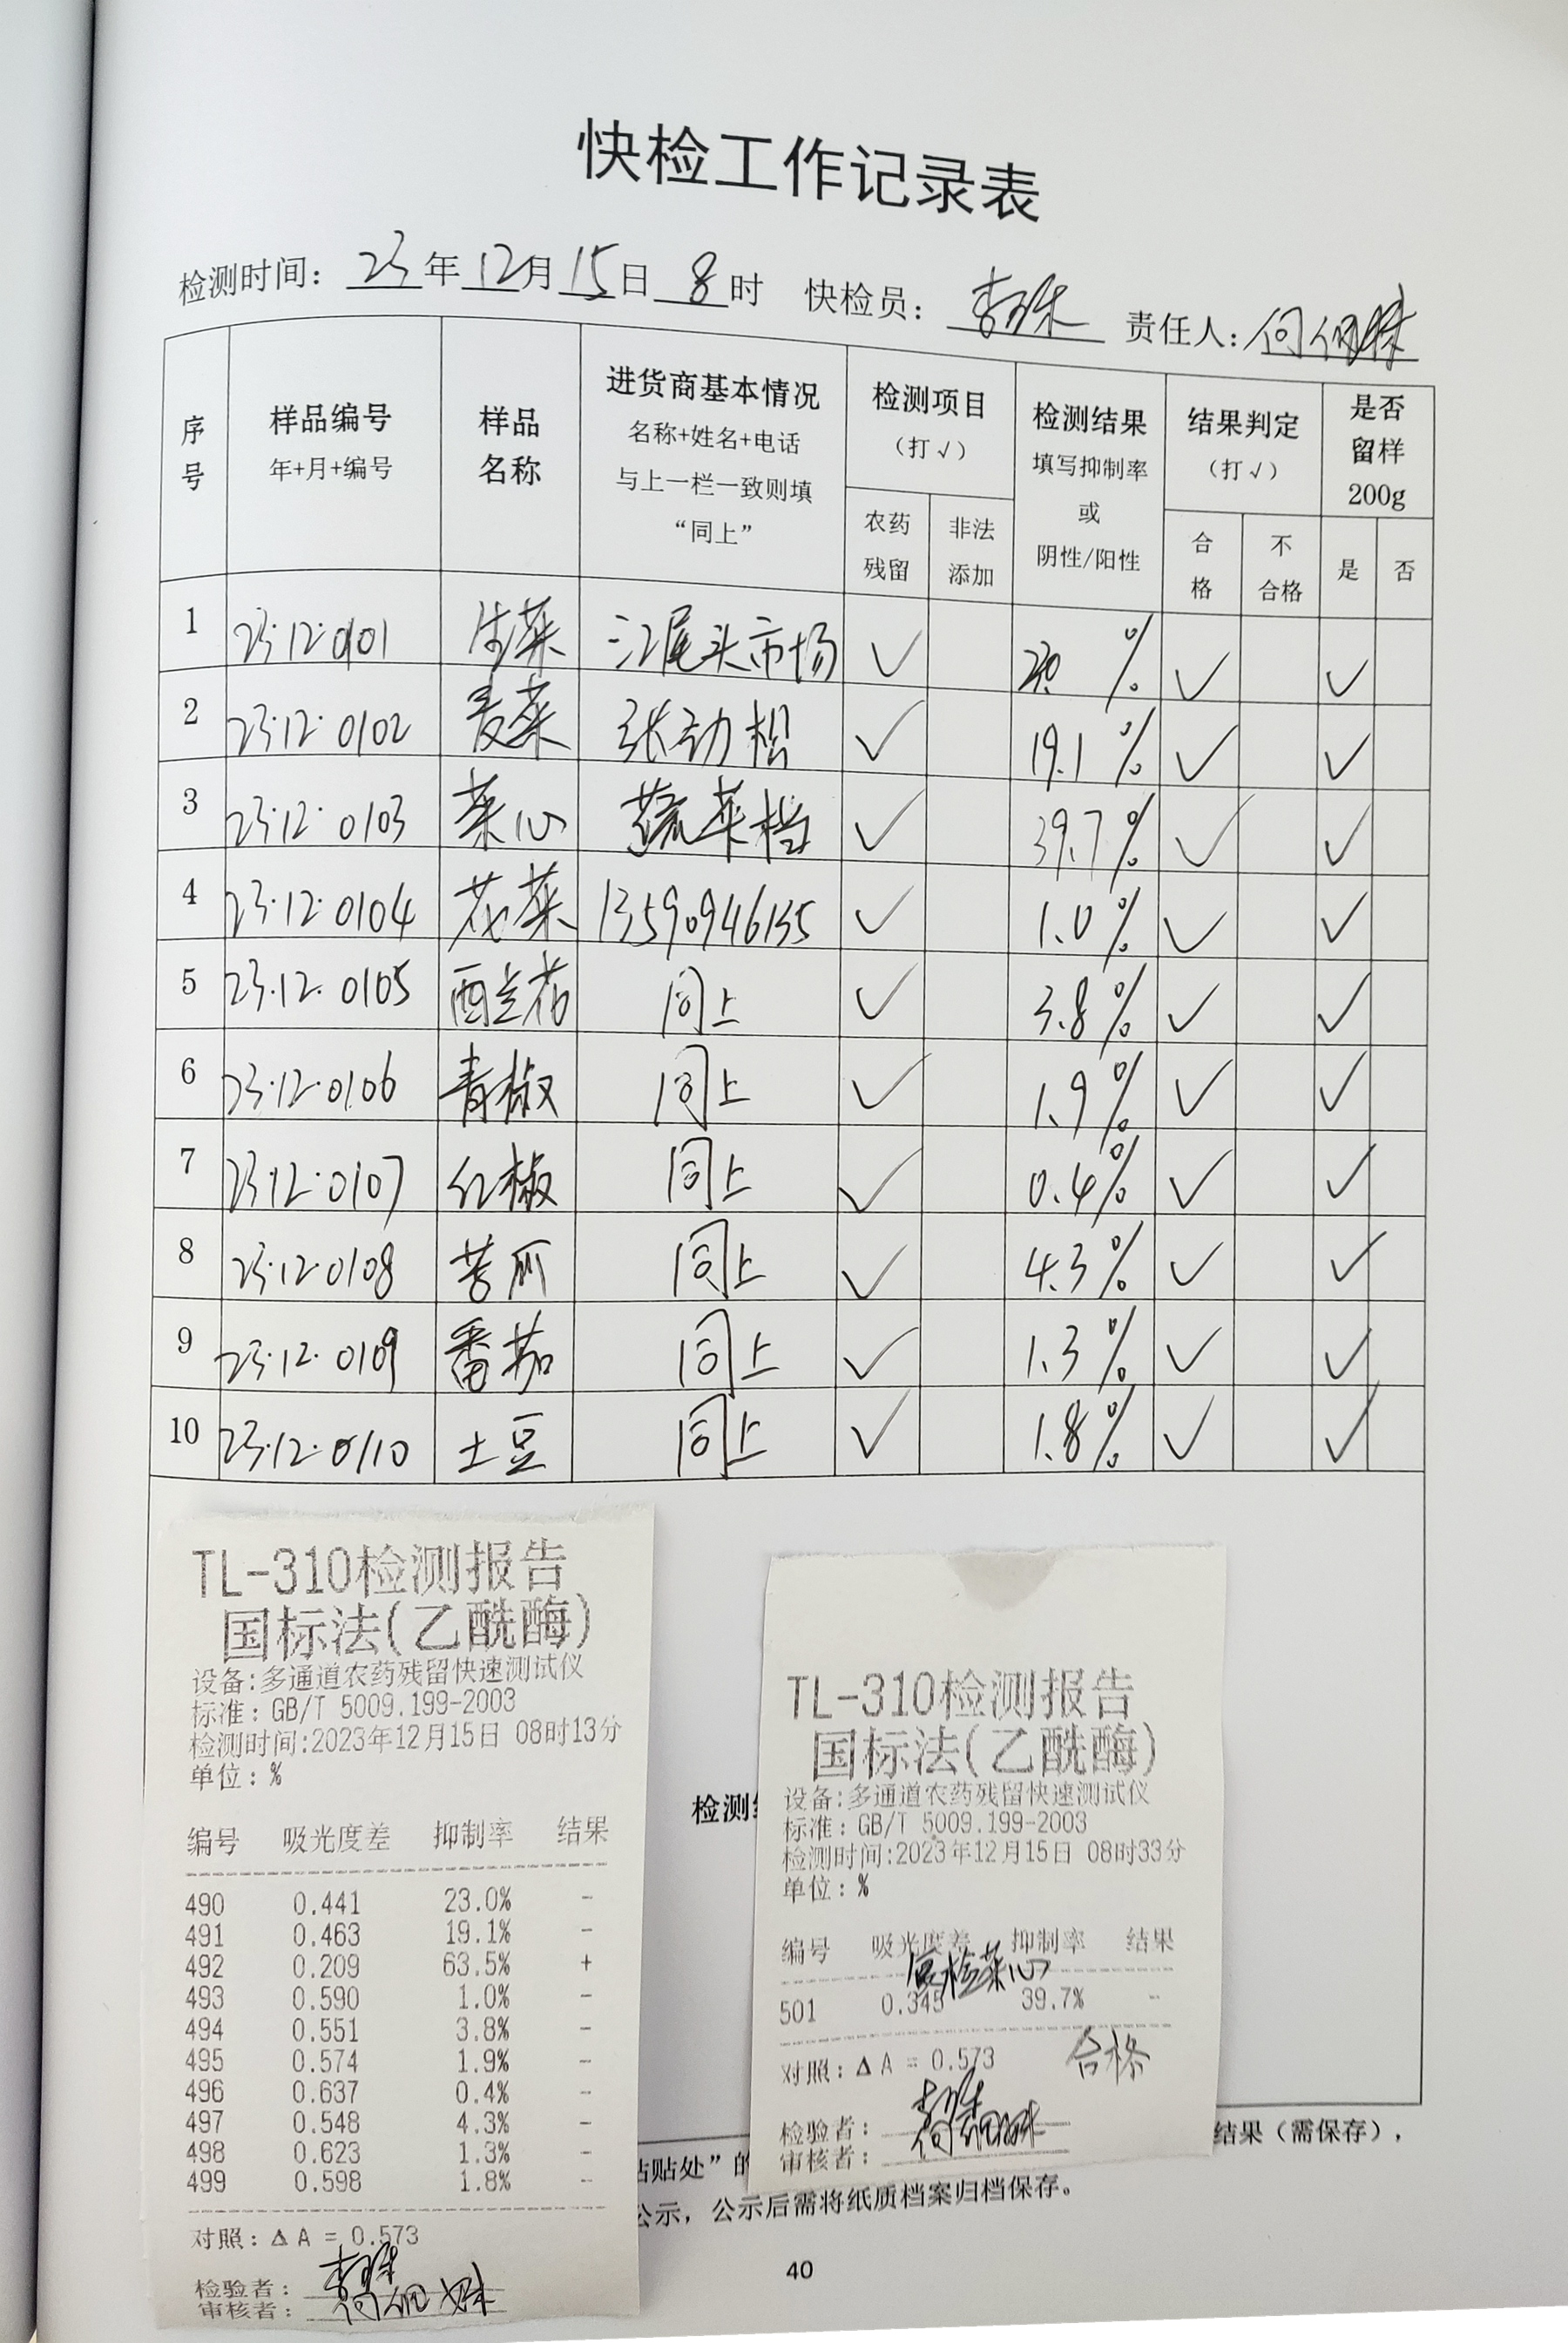 快检工作记录表
检测时间: 23年12月15日 8时 快检员: 责任人: 何细妹
序号 样品编号 年+月+编号 样品名称 进货商基本情况 名称+姓名+电话 与上一栏一致则填“同上” 检测项目 (打√) 农药残留 非法添加 检测结果 填写抑制率或阴性/阳性 结果判定 (打√) 合格 不合格 是否留样200g 是 否
1 23·12·0101 生菜 江尾头市场 ✓ % ✓ ✓
2 23·12·0102 麦菜 张劲松 ✓ 19.1% ✓ ✓
3 23·12·0103 菜心 蔬菜档 ✓ 39.7% ✓ ✓
4 23·12·0104 花菜 13590946135 ✓ 1.0% ✓ ✓
5 23·12·0105 西兰花 同上 ✓ 3.8% ✓ ✓
6 23·12·0106 青椒 同上 ✓ 1.9% ✓ ✓
7 23·12·0107 红椒 同上 ✓ 0.4% ✓ ✓
8 23·12·0108 苦瓜 同上 ✓ 4.3% ✓ ✓
9 23·12·0109 番茄 同上 ✓ 1.3% ✓ ✓
10 23·12·0110 土豆 同上 ✓ 1.8% ✓ ✓
TL-310检测报告
国标法(乙酰酶)
设备:多通道农药残留快速测试仪
标准: GB/T 5009.199-2003
检测时间:2023年12月15日 08时13分
单位: %
编号 吸光度差 抑制率 结果
490 0.441 23.0% -
491 0.463 19.1% -
492 0.209 63.5% +
493 0.590 1.0% -
494 0.551 3.8% -
495 0.574 1.9% -
496 0.637 0.4% -
497 0.548 4.3% -
498 0.623 1.3% -
499 0.598 1.8% -
对照: Δ A = 0.573
检验者:
审核者: 何细妹
检测
TL-310检测报告
国标法(乙酰酶)
设备:多通道农药残留快速测试仪
标准: GB/T 5009.199-2003
检测时间:2023年12月15日 08时33分
单位: %
编号 吸光度差 抑制率 结果
复检菜心
501 0.345 39.7% -
对照: Δ A = 0.573 合格
检验者:
审核者: 何细妹
粘贴处”的 结果（需保存），
公示，公示后需将纸质档案归档保存。
40